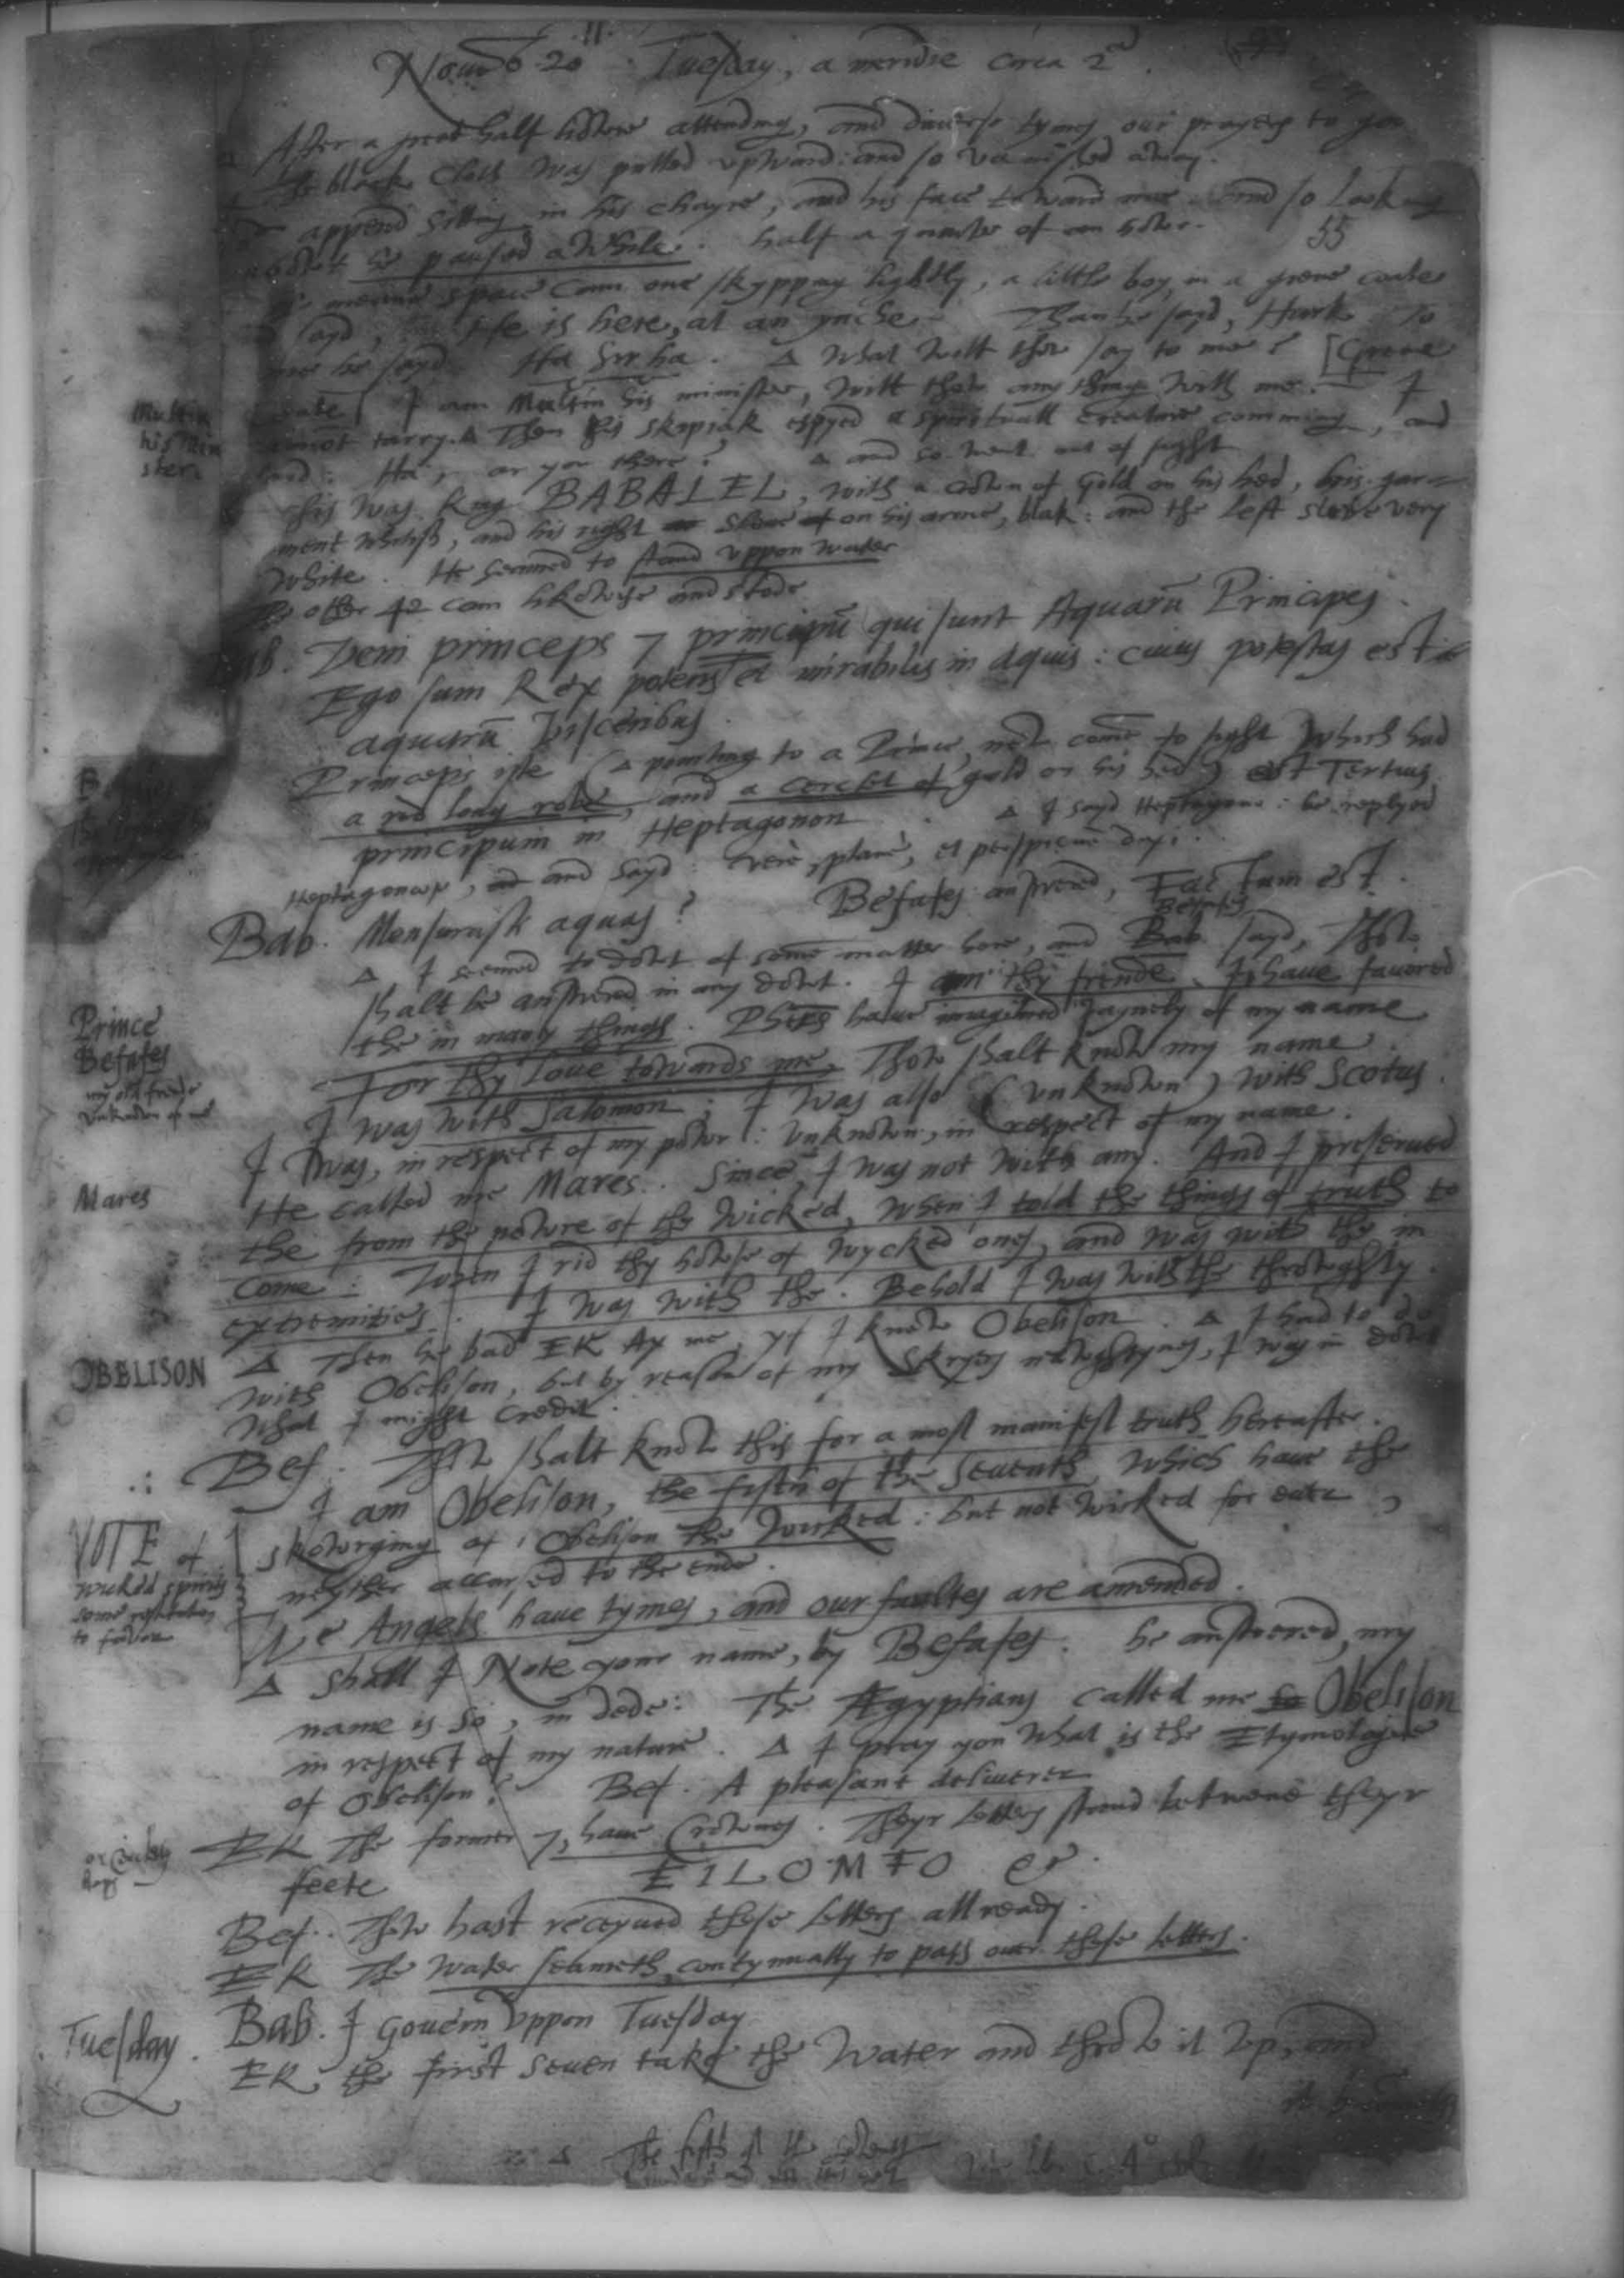 Nouēb. 20. Tuesday, a meridie circa 2ª.
After a great half howre attending, and diuerse tymes our prayers to god
The blak cloth was pulled vpward: and so vanished away.
appered sitting in his chayre, and his face toward me: and so looking
abowt he pawsed a while: half a quarter of an howre.
55
meane space cam one skypping lightly, a little boy, in a grene coate
sayd, He is here, at an ynche. Than he sayd, Hark. To
me he sayd Ha Sirha. Δ What wilt thow say to me? [Grene
Coate] I am Multin his minister, wilt thow any thing with me? I
Multin
his Mini
ster.
cannot tarry. Δ Then this skipiak espyed a spirituall creature comming, and
said: Ha, ar you there? Δ and so went out of sight
This was King BABALEL, with a crown of Gold on his hed, his gar-
ment whitish, and his right sleve on his arme, blak: and the left sleve very
white. He seemed to stand vppon water
The other 42 cam likewise and stode
Bab. Veni princeps 7 principū qui sunt Aquarū Principes.
Ego sum Rex potens et mirabilis in aquis: cuius potestas est in
aquarū Visceribus.
Princeps iste (Δ pointing to a Prince, not come to sight which had
a red long robe, and a cerclet of gold on his hed) est Tertius
principum in Heptagonon. Δ I sayd Heptagono: he replyed
Heptagonon, and sayd: vere, plane, et perspicue dixi.
Bab. Mensurasti aquas? Befafes answered, Factum est.
Δ I seemed to dowt of some matter here, and Bab Befafes sayd, Thow
shalt be answered in any dowt. I am thy frende. I haue favored
the in many things. Phers haue imagined vaynely of my name
Prince
Befafes
my old frende
vnknown of me
For thy loue towards me, Thow shalt know my name.
I was with Salomon; I was also (vnknown) with Scotus.
I was, in respect of my powr: vnknown, in respect of my name.
Mares
He called me Mares. Since, I was not with any. And I preserued
the from the powre of the wicked, when I told the things of truth to
come: When I rid thy howse of wycked ones, and was with the in
extremities. I was with the. Behold I was with the throwghly.
OBELISON
Δ Then he bad EK Ax me, yf I knew Obelison. Δ I had to do
with Obelison, but by reason of my Skryers nawghtynes, I was in dowt
What I might credit.
∴ Bef. Thow shalt know this for a most manifest truth hereafter.
I am Obelison, the fifth of the Seuenth, which haue the
skowrging of Obelison the wicked: but not wicked for euer
neyther accursed to the ende.
NOTE of
wicked spirits
some restitution
to favor
We Angels haue tymes, and our faultes are amended.
Δ Shall I Note your name, by Befafes. he answered, my
name is so, in dede: The Ægyptians called me Obelison
in respect of my nature. Δ I pray you what is the Etymologie
of Obelison? Bef. A pleasant deliuerer
EK The former 7, haue Crownes. Theyr letters stand betwene theyr
feete EILOMFO &c.
Bef. Thow hast receyued those letters allready.
EK The water seemeth, contynually to pass ouer these letters.
Tuesday.
Bab. I gouern vppon Tuesday
EK. the first Seuen take the Water and throw it Vp, and